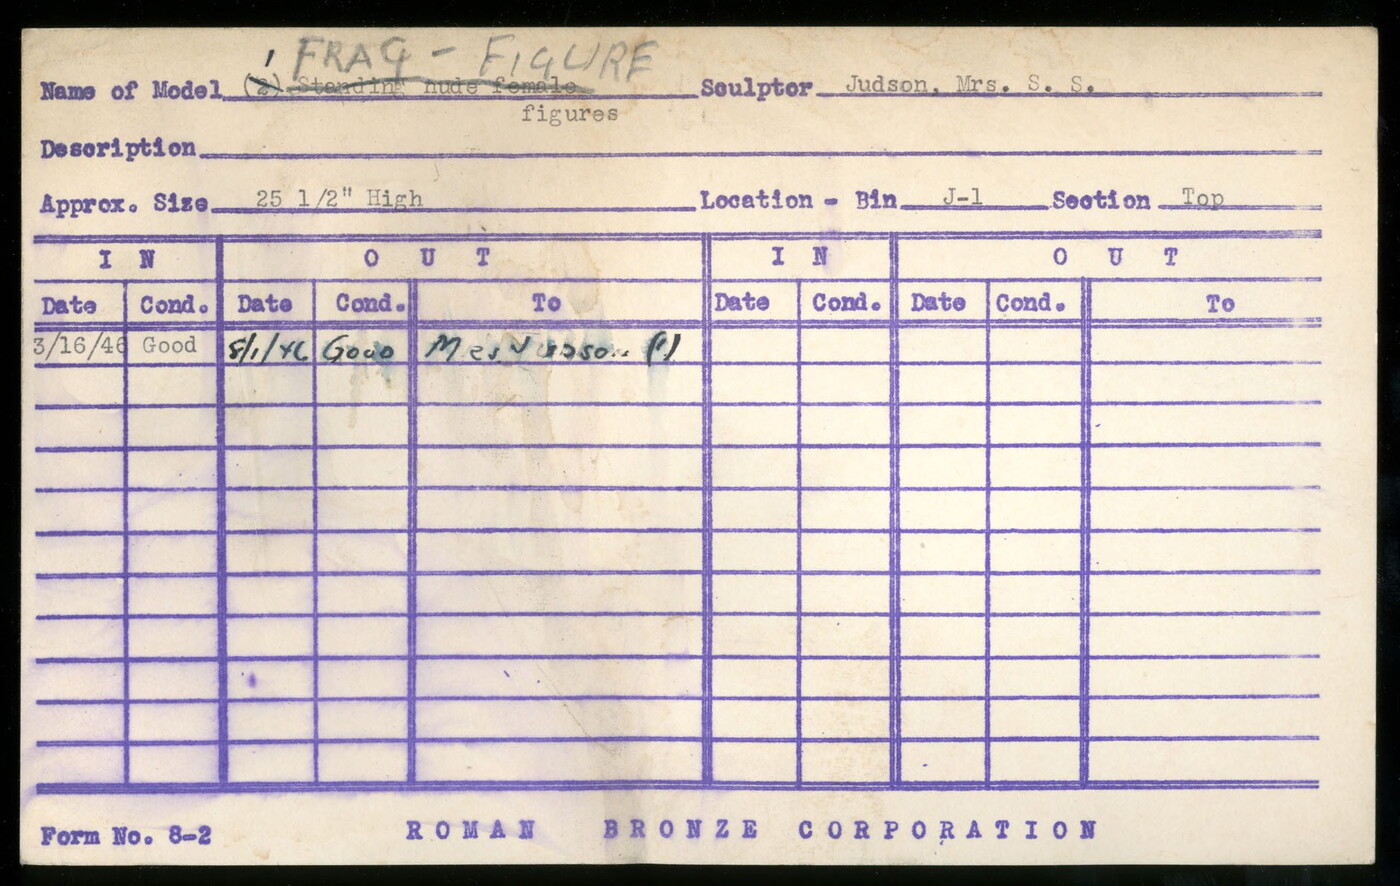 1 FRAG - FIGURE
Name of Model (2) Standing nude female Sculptor Judson, Mrs. S. S.
figures
Description
Approx. Size 25 1/2" High Location - Bin J-1 Section Top
I N O U T I N O U T
Date Cond. Date Cond. To Date Cond. Date Cond. To
3/16/46 Good 8/1/46 Good Mrs Judson (1)
Form No. 8-2 ROMAN BRONZE CORPORATION